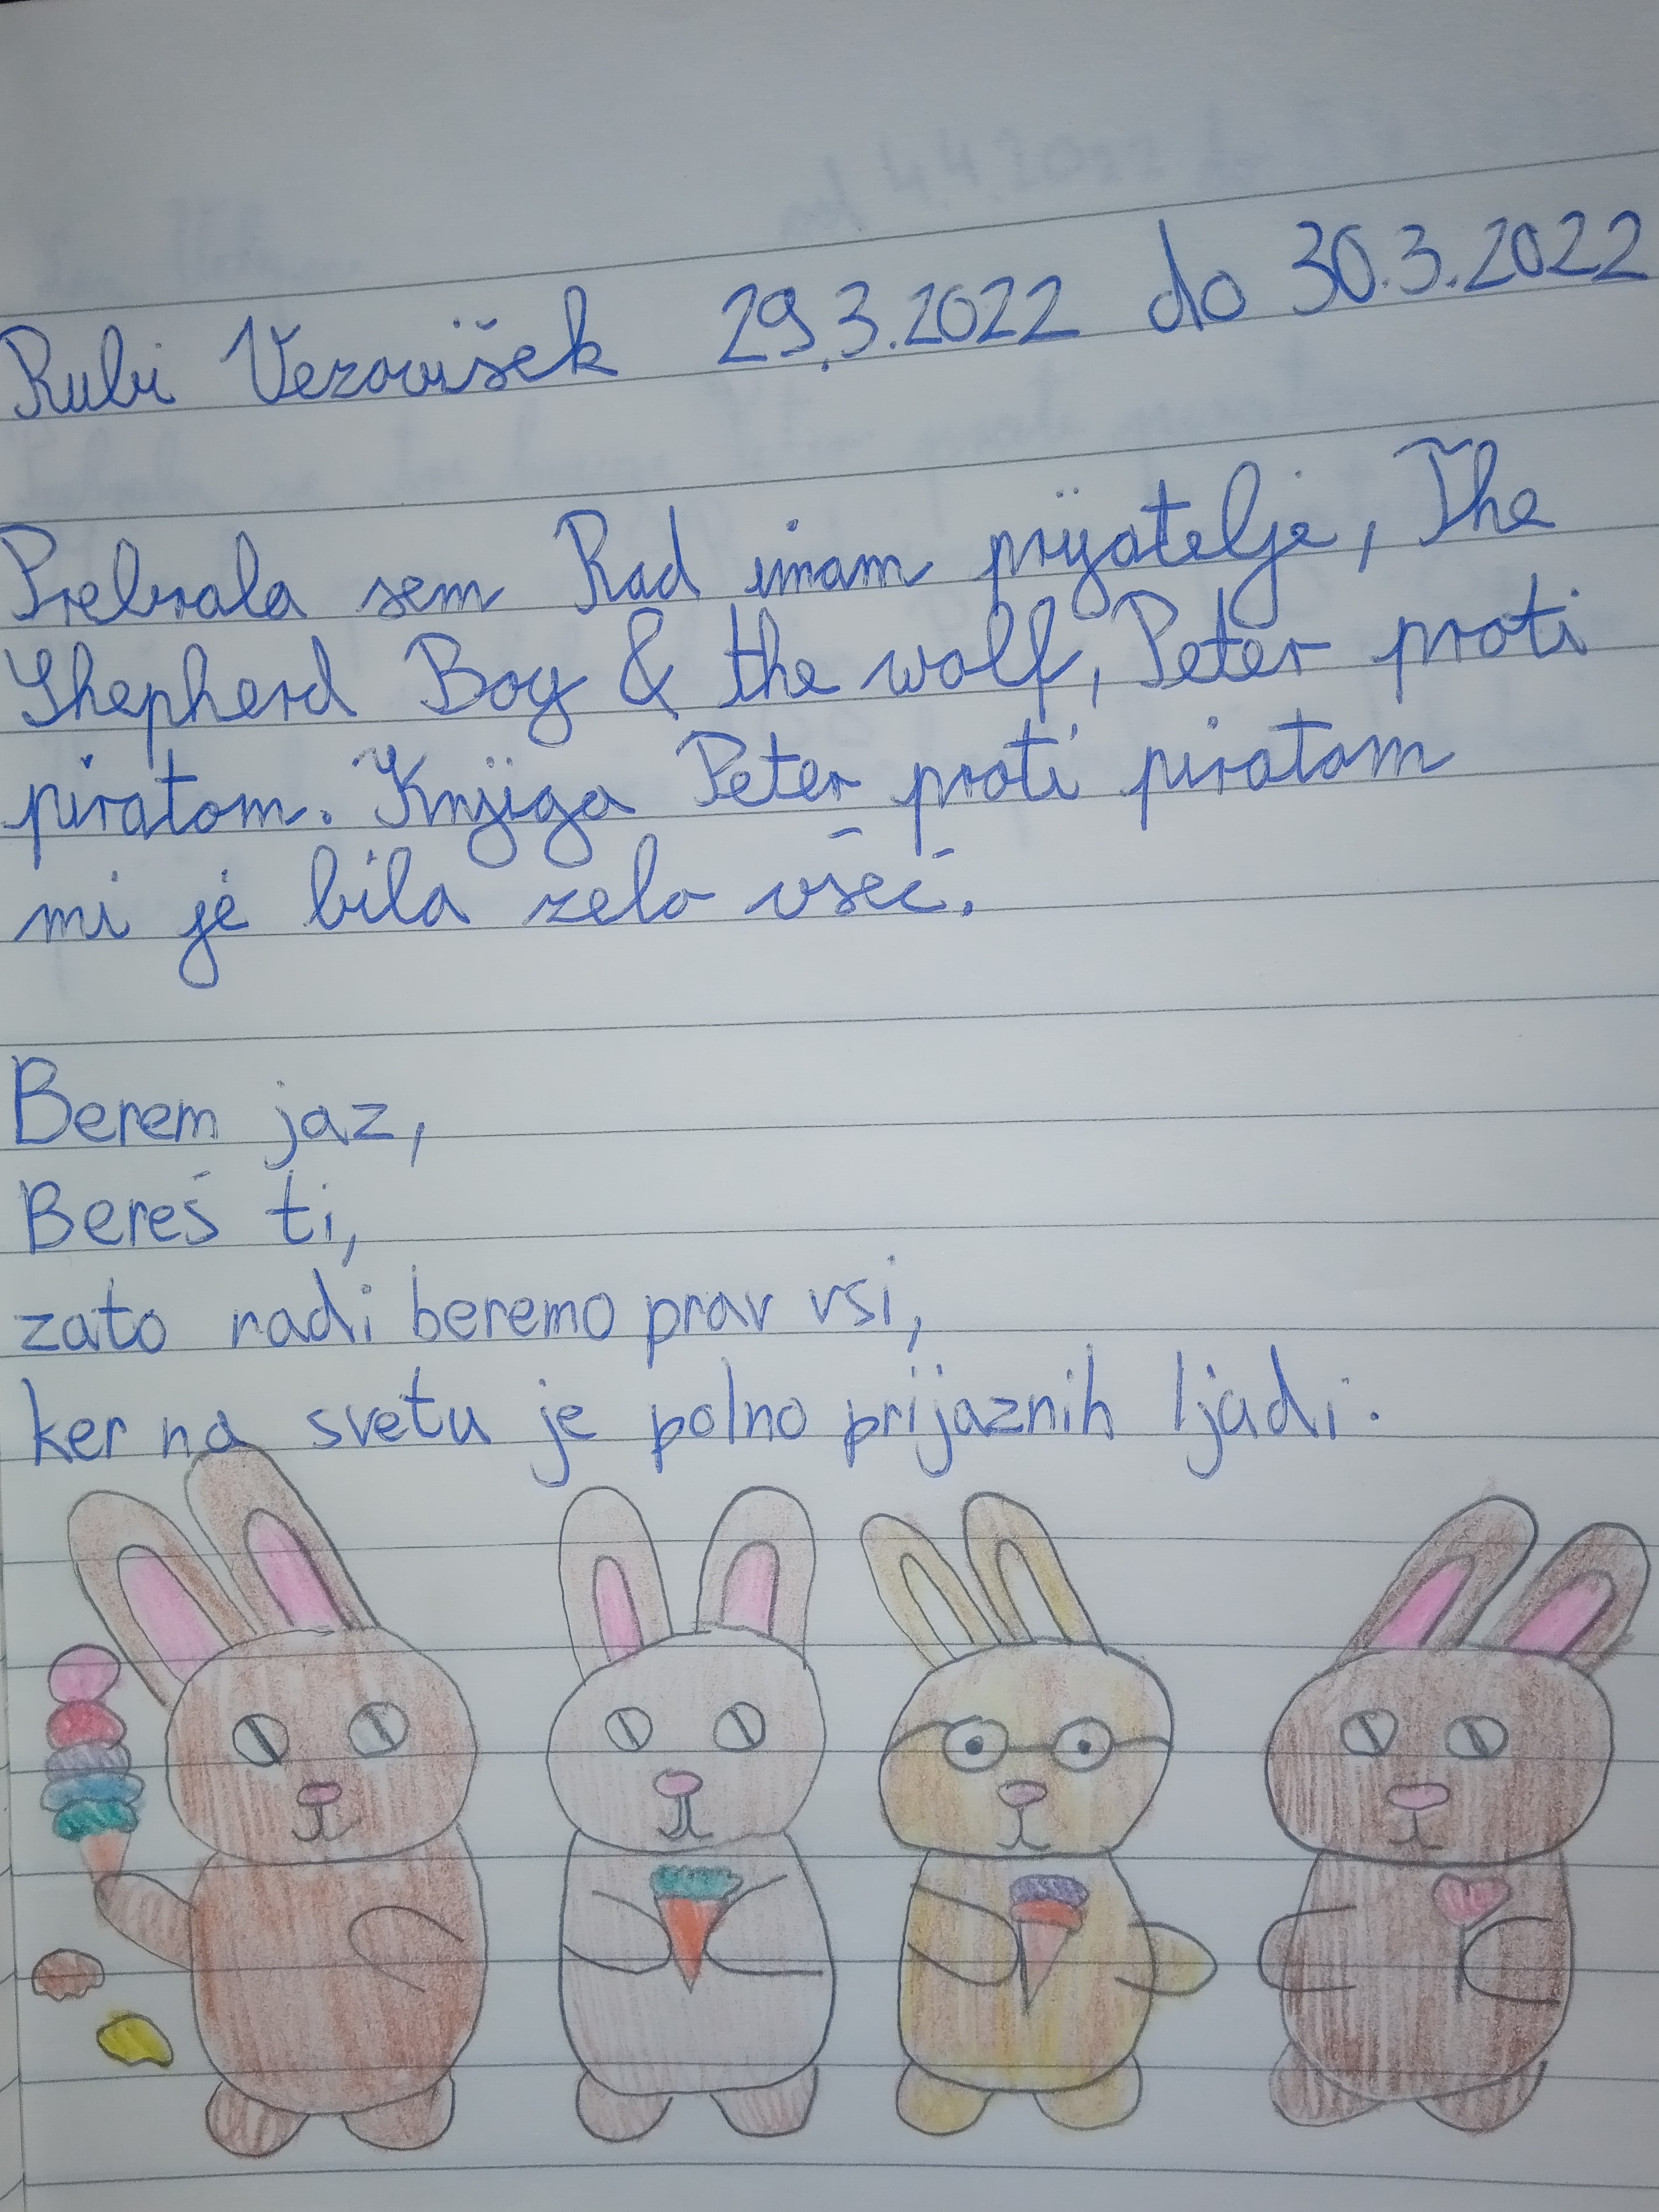 Rubi Vezovišek 29.3.2022 do 30.3.2022
Prebrala sem Rad imam prijatelje, The
Shepherd Boy & the wolf, Peter proti
piratom. Knjiga Peter proti piratom
mi je bila zelo všeč.
Berem jaz,
Bereš ti,
zato radi beremo prav vsi,
ker na svetu je polno prijaznih ljudi.